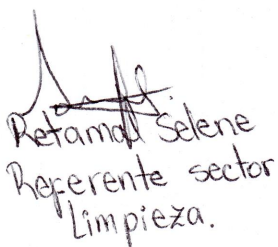 Retamal Selene
Referente sector
Limpieza.